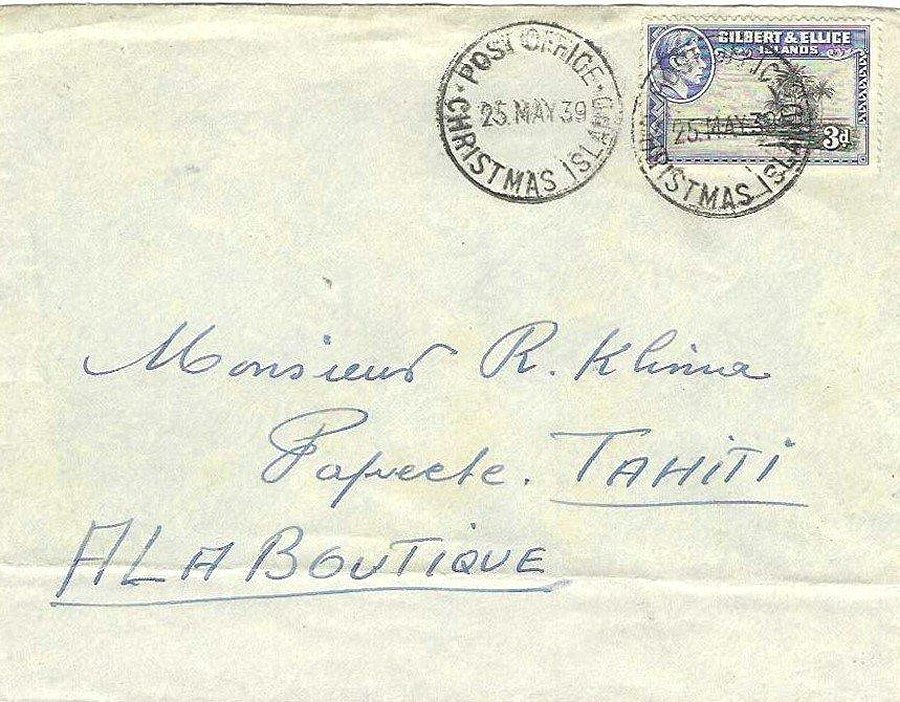 POST OFFICE
25 MAY 39
CHRISTMAS ISLAND
GILBERT & ELLICE
ISLANDS
25 MAY 39
CHRISTMAS ISLAND
3d
Monsieur R. Klima
Papeete. TAHITI
A LA BOUTIQUE